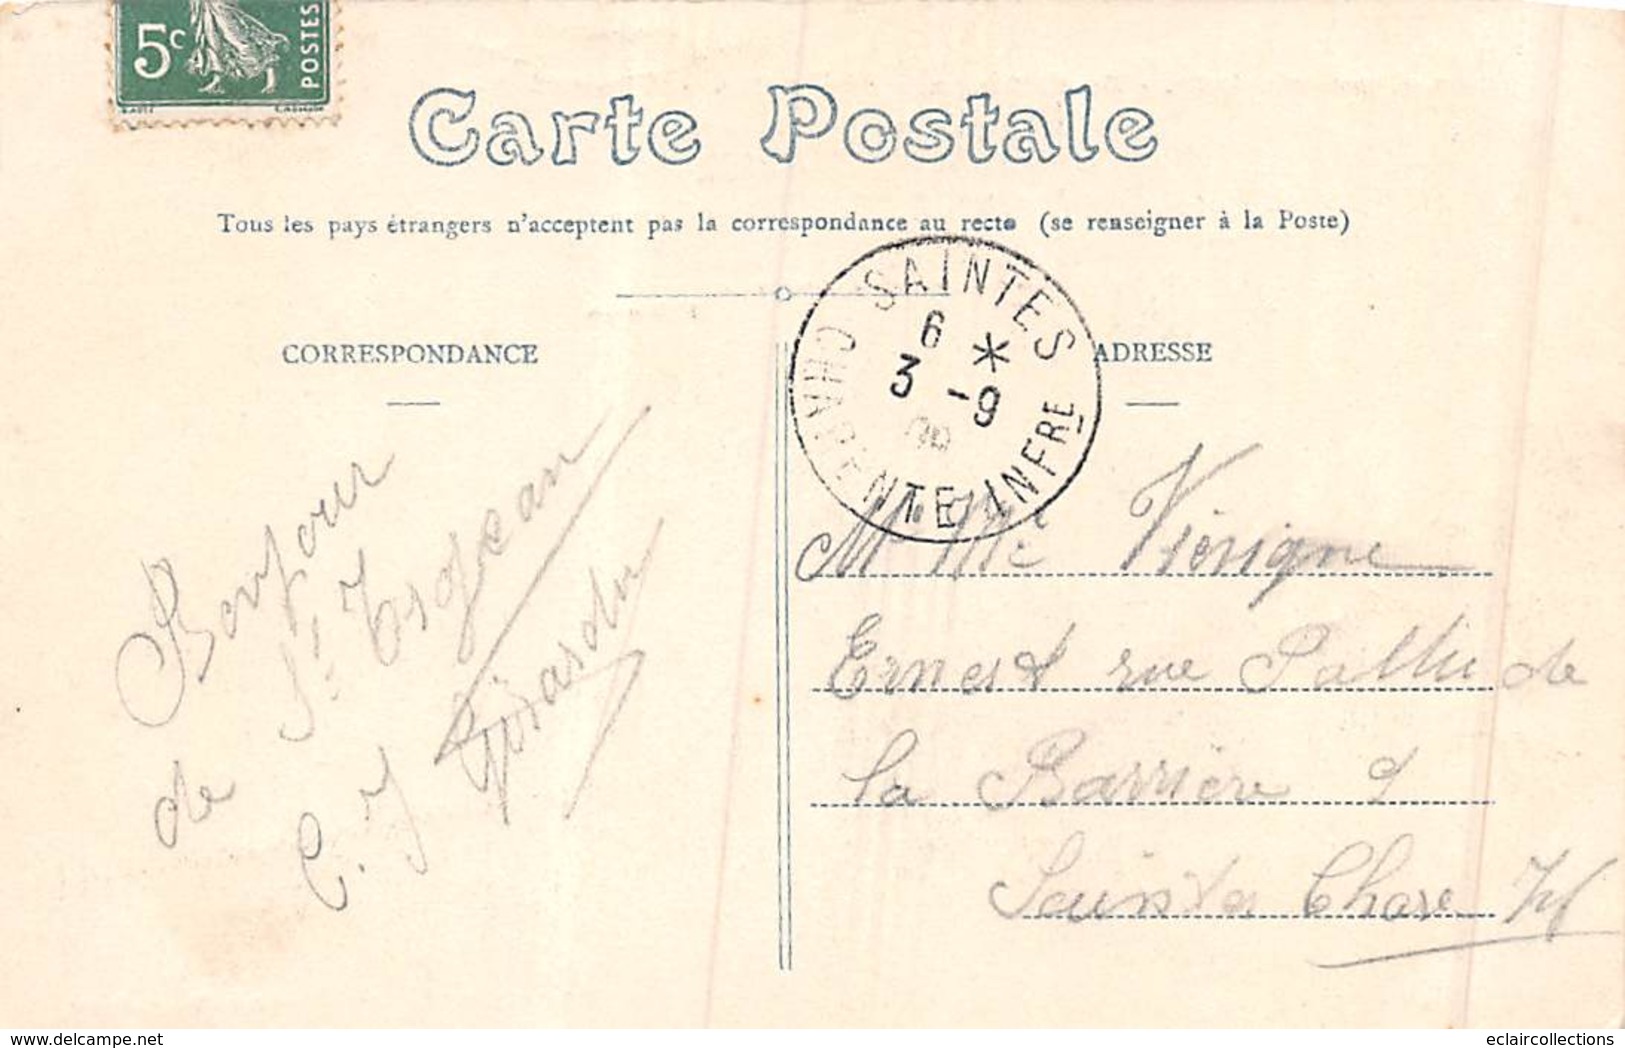 5c
POSTES
Carte Postale
Tous les pays étrangers n'acceptent pas la correspondance au recto (se renseigner à la Poste)
CORRESPONDANCE
ADRESSE
SAINTES
6 *
3 -9
CHARENTE INFRE
Bonjour
de St Trojean
C. J Girardin
Mr Me Vierigne
Ernest rue Pallu de
la Barrière 9
Saintes Chare Inf
eclaircollections
www.delcampe.net